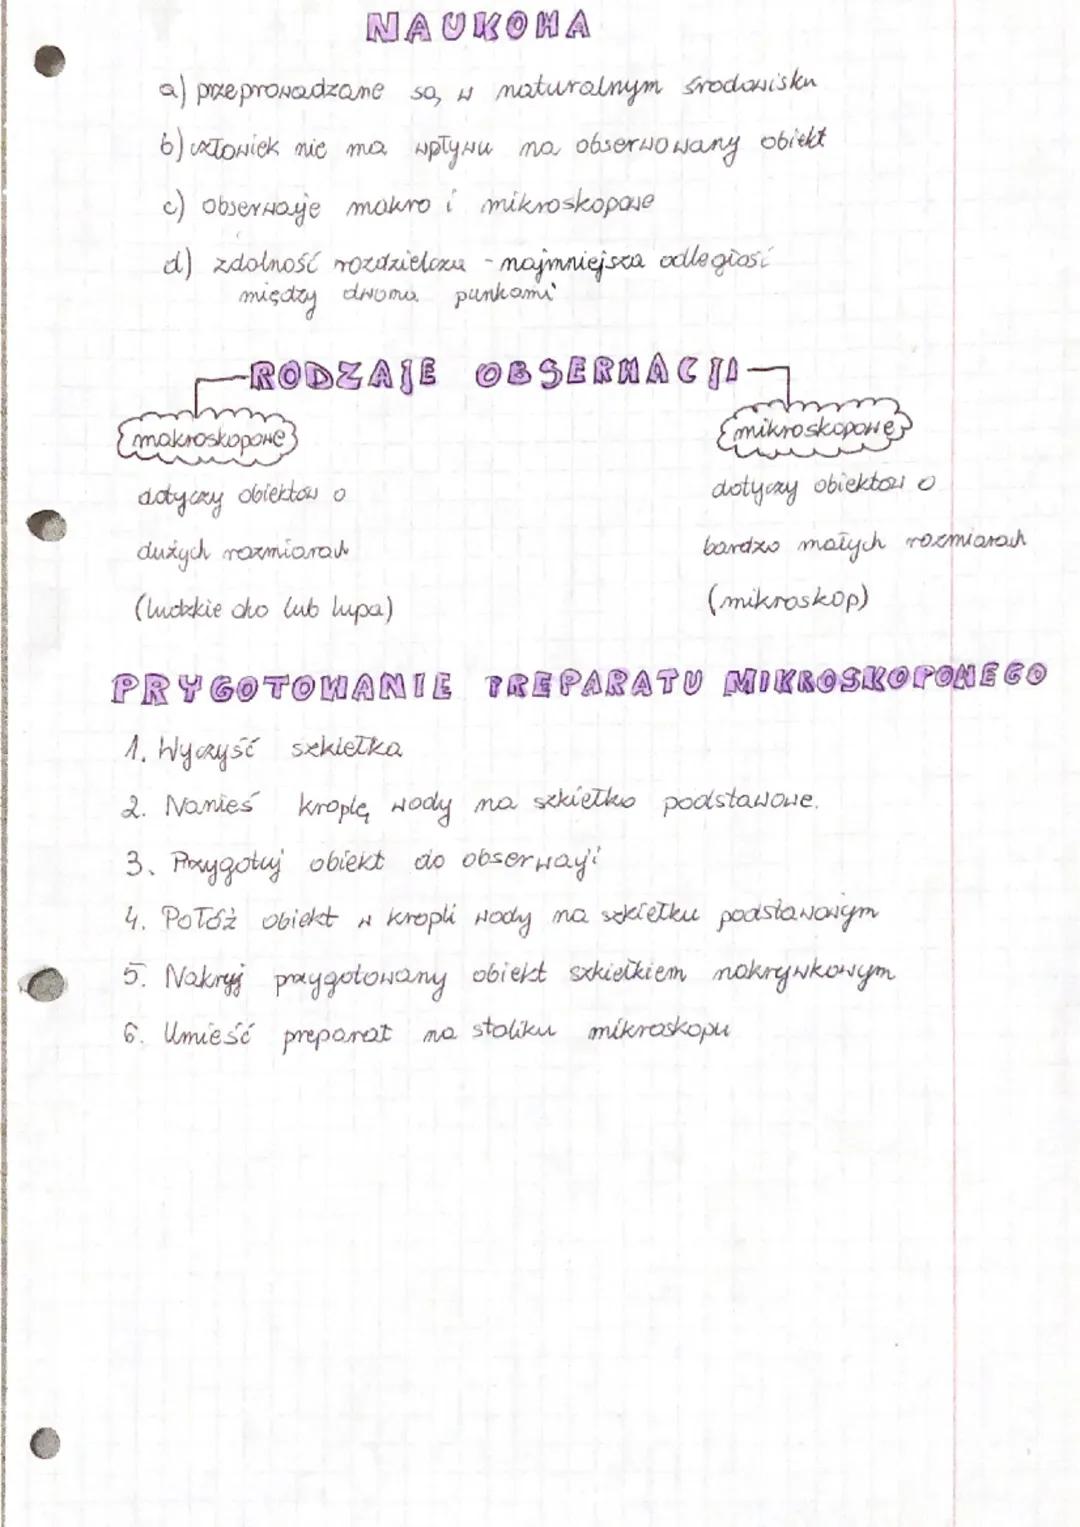 NAUKOWA
a) przeprowadzane są w naturalnym środowisku
b) człowiek nie ma wpływu na obserwowany obiekt
c) obserwacje makro i mikroskopowe
d) zdolność rozdzielcza - najmniejsza odległość
między dwoma punkami
RODZAJE OBSERWACJI
makroskopowe
mikroskopowe
dotyczy obiektów o
dużych rozmiarach
(ludzkie oko lub lupa)
dotyczy obiektów o
bardzo małych rozmiarach
(mikroskop)
PRYGOTOWANIE PREPARATU MIKROSKOPOWEGO
1. Wyczyść szkiełka
2. Nanieś kroplę wody na szkiełko podstawowe.
3. Przygotuj obiekt do obserwacji
4. Połóż obiekt w kropli wody na szkiełku podstawowym
5. Nakryj przygotowany obiekt szkiełkiem nakrywkowym
6. Umieść preparat na stoliku mikroskopu